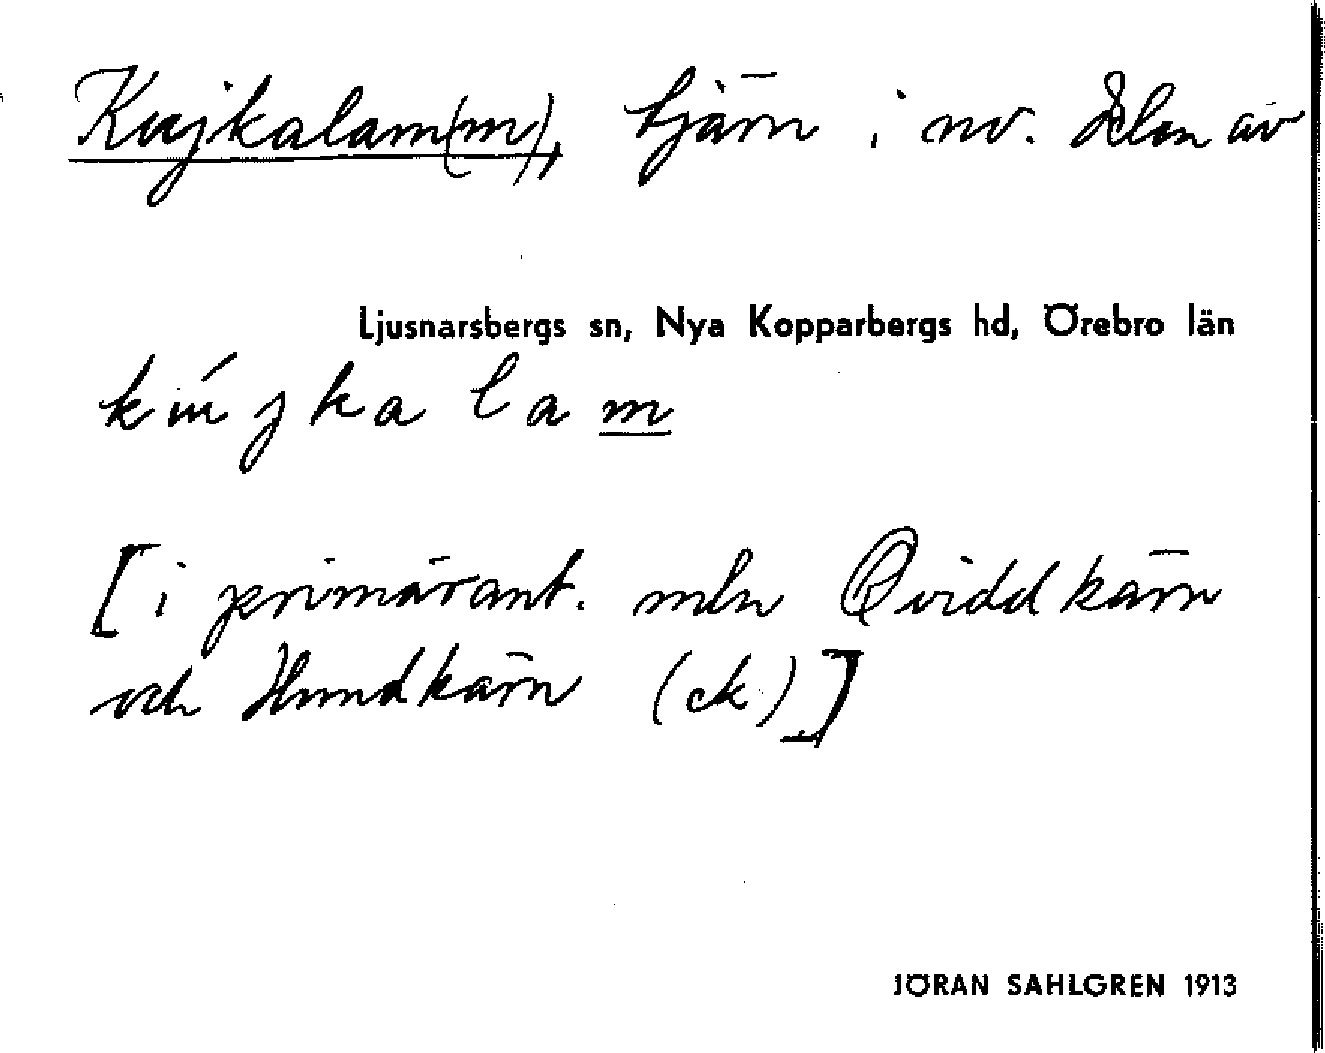 Kujkalam(m), tjärn i nv. delen av
Ljusnarsbergs sn, Nya Kopparbergs hd, Örebro län
kújkalam
[i primärant. mln Qviddkärn
och Hundkärn (ek)]
JÖRAN SAHLGREN 1913